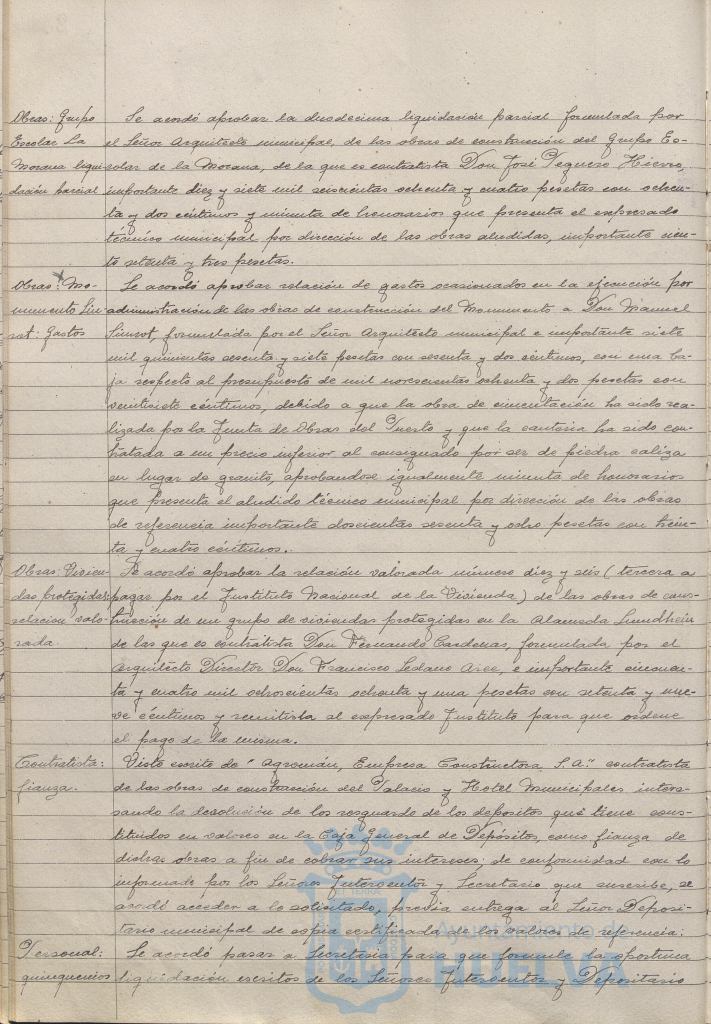 Obras: Grupo
Escolar La
Morana liqui-
dación parcial
Se acordó aprobar la duodecima liquidación parcial formulada por
el Señor Arquitecto municipal, de las obras de construcción del Grupo Es-
colar de la Morana, de la que es contratista Don José Peguero Hierro,
importante diez y siete mil seiscientas ochenta y cuatro pesetas con ochen-
ta y dos céntimos y minuta de honorarios que presenta el expresado
técnico municipal por dirección de las obras aludidas, importante cien-
to setenta y tres pesetas.
Obras: Mo-
numento Siu-
rot: Gastos
Se acordó aprobar relación de gastos ocasionados en la ejecución por
administración de las obras de construcción del Monumento a Don Manuel
Siurot, formulada por el Señor Arquitecto municipal e importante siete
mil quinientas sesenta y siete pesetas con sesenta y dos céntimos, con una ba-
ja respecto al presupuesto de mil novecientas ochenta y dos pesetas con
veintisiete céntimos, debido a que la obra de cimentación ha sido rea-
lizada por la Junta de Obras del Puerto y que la cantería ha sido con-
tratada a un precio inferior al consignado por ser de piedra caliza
en lugar de granito, aprobandose igualmente minuta de honorarios
que presenta el aludido técnico municipal por dirección de las obras
de referencia importante doscientas sesenta y ocho pesetas con trein-
ta y cuatro céntimos.
Obras: Vivien-
das protegidas:
relación valo-
rada.
Se acordó aprobar la relación valorada número diez y seis (tercera a
pagar por el Instituto Nacional de la Vivienda) de las obras de cons-
trucción de un grupo de viviendas protegidas en la Alameda Sundheim
de las que es contratista Don Fernando Cardenas, formulada por el
Arquitecto Director Don Francisco Sedano Arce, e importante cincuen-
ta y cuatro mil ochocientas ochenta y una pesetas con setenta y nue-
ve céntimos y remitirla al expresado Instituto para que ordene
el pago de la misma.
Contratista:
fianza.
Visto escrito de "Agroman, Empresa Constructora S.A." contratista
de las obras de construcción del Palacio y Hotel Municipales intere-
sando la devolución de los resguardo de los depositos que tiene cons-
tituidos en valores en la Caja General de Depósitos, como fianza de
dichas obras a fin de cobrar sus intereses; de conformidad con lo
informado por los Señores Interventor y Secretario que suscribe, se
acordó acceder a lo solicitado, previa entrega al Señor Deposi-
tario municipal de copia certificada de los valores de referencia.
Personal:
quinquenios
Se acordó pasar a Secretaría para que formule la oportuna
liquidación escritos de los Señores Interventor y Depositario
Ayuntamiento de
HUELVA